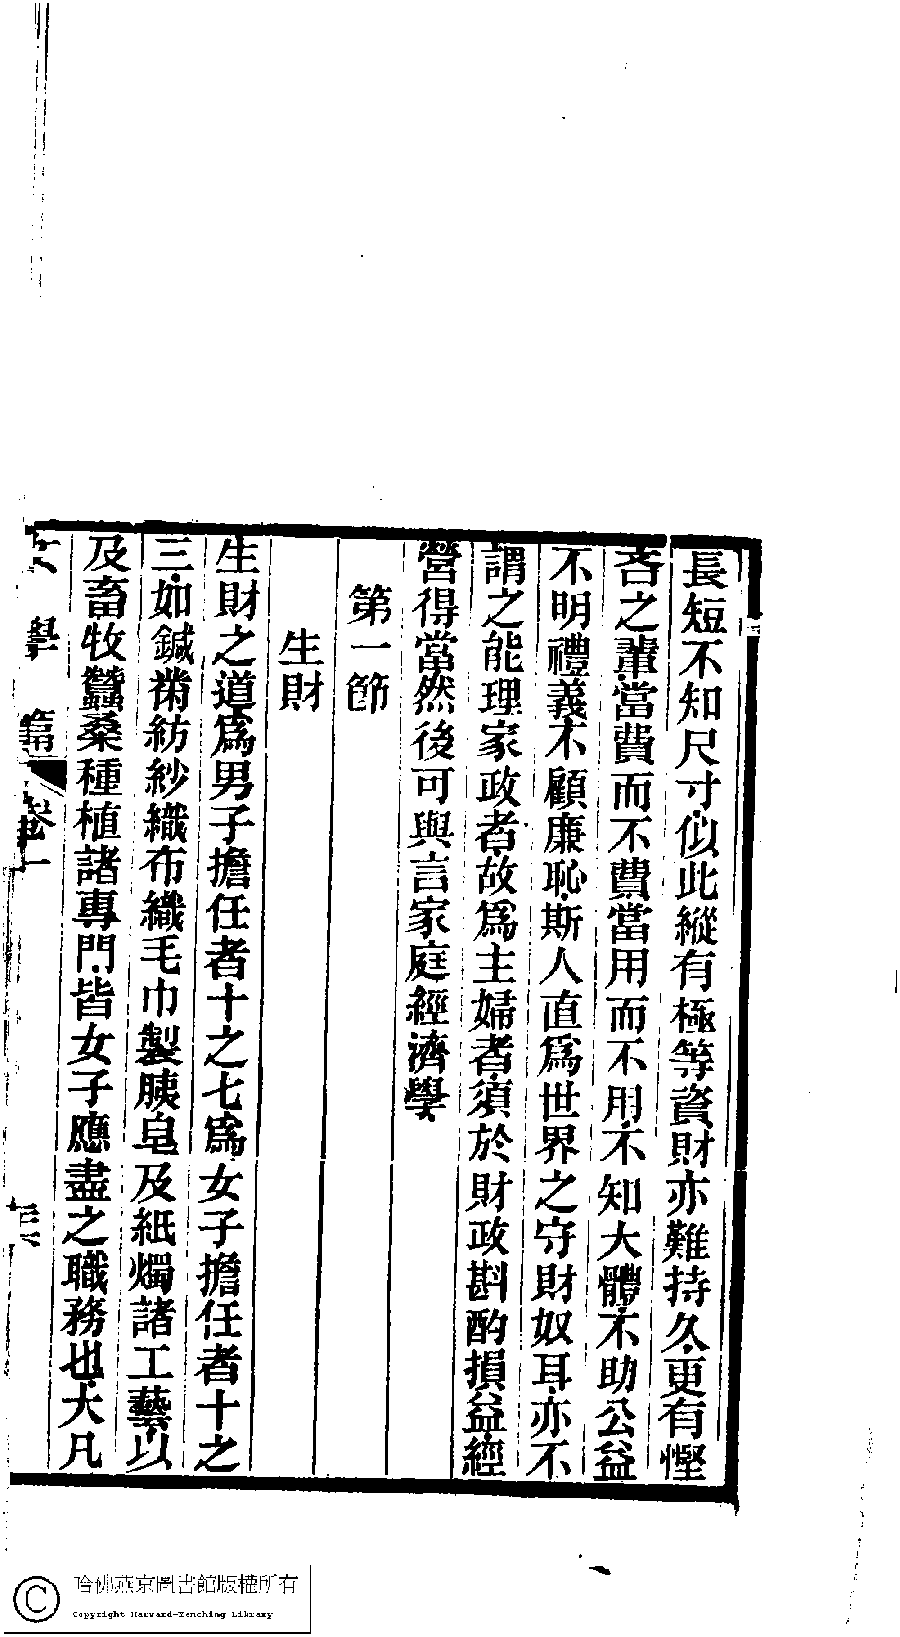 長短不知尺寸似此縱有極等資財亦難持久更有慳
吝之輩當費而不費當用而不用不知大體不助公益
不明禮義不顧廉恥斯人直爲世界之守財奴耳亦不
謂之能理家政者故爲主婦者須於財政斟酌損益經
營得當然後可與言家庭經濟學
第一節
生財
生財之道爲男子擔任者十之七爲女子擔任者十之
三如鍼黹紡紗織布織毛巾製胰皂及紙燭諸工藝以
及畜牧蠶桑種植諸專門皆女子應盡之職務也大凡
女學篇 卷一
哈佛燕京圖書館版權所有
Copyright Harvard-Yenching Library